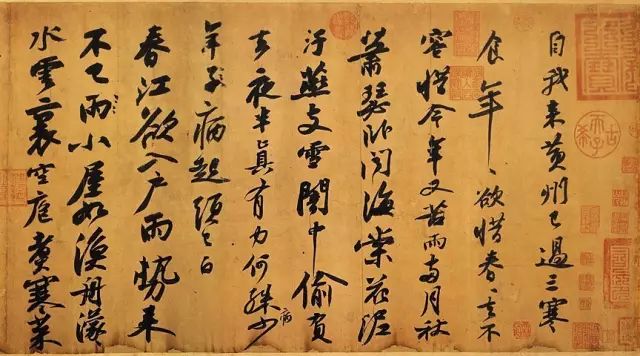 自我来黄州已過三寒
食年〻欲惜春〻去不
容惜今年又苦雨兩月秋
蕭瑟卧聞海棠花泥
汙燕支雪闇中偷負
去夜半真有力何殊少病
年子病起頭已白
春江欲入户雨勢来
不已雨小屋如漁舟濛〻
水雲裏空庖煮寒菜
古希天子